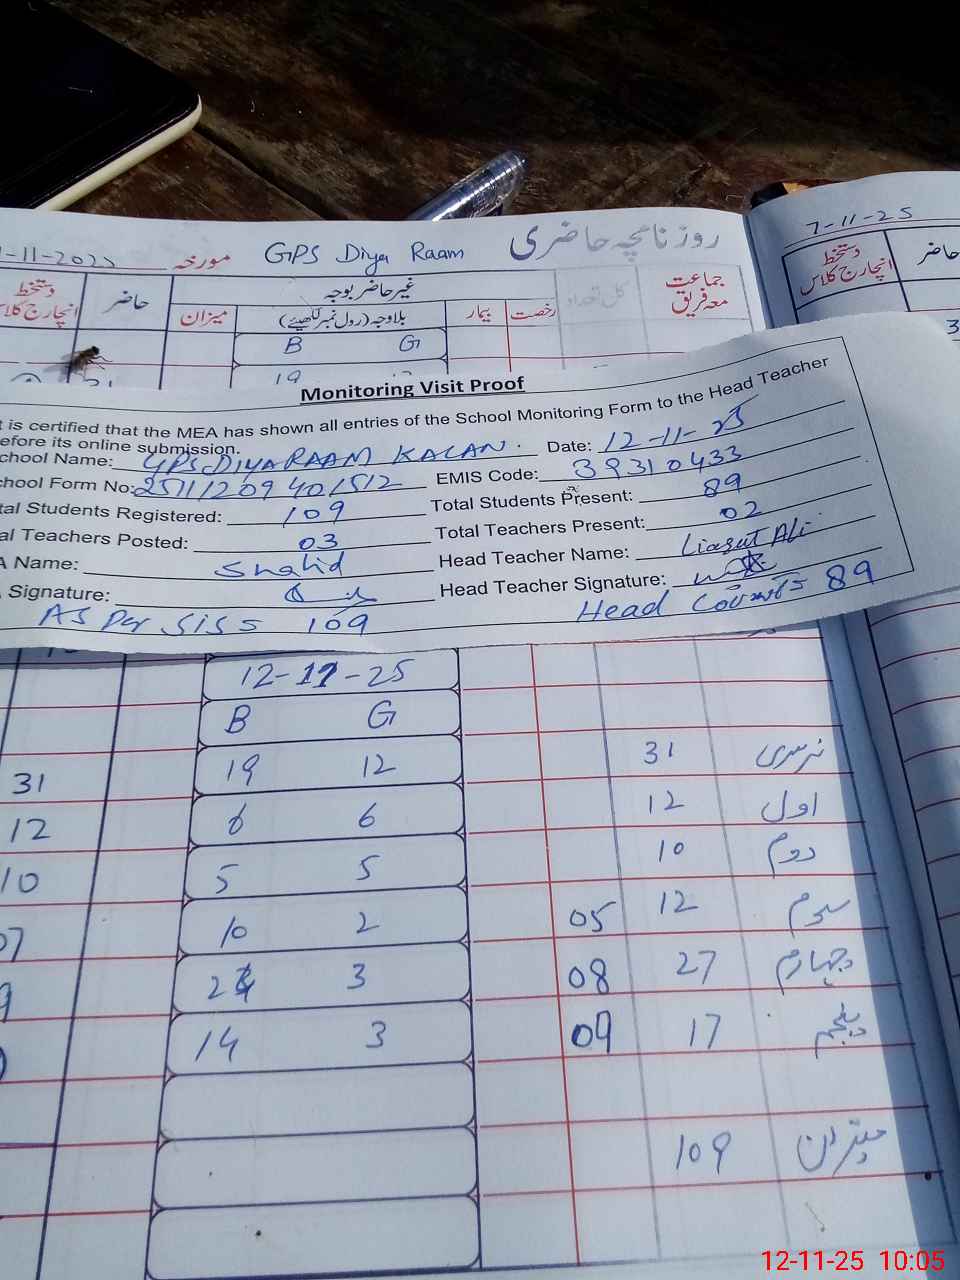 روزنامچہ حاضری
GPS Diya Raam
مورخہ
7-11-25
جماعت معہ فریق
کل تعداد
رخصت
بیمار
غیر حاضر بوجہ
بلاوجہ (رول نمبر لکھیئے)
میزان
حاضر
دستخط انچارج کلاس
دستخط انچارج کلاس
حاضر
B G
19
Monitoring Visit Proof
t is certified that the MEA has shown all entries of the School Monitoring Form to the Head Teacher
efore its online submission.
chool Name: GPS DIYA RAAM KALAN. Date: 12-11-25
chool Form No: EMIS Code: 39310433
tal Students Registered: 109 Total Students Present: 89
al Teachers Posted: 03 Total Teachers Present: 02
A Name: Shahid Head Teacher Name: Liaqat Ali
Signature: Head Teacher Signature:
As Per SISS 109 Head Count = 89
12-11-25
B G
نرسری 31 19 12 31
اول 12 6 6 12
دوم 10 5 5 10
سوم 12 05 10 2 07
چہارم 27 08 24 3 9
پنجم 17 09 14 3
میزان 109
12-11-25 10:05